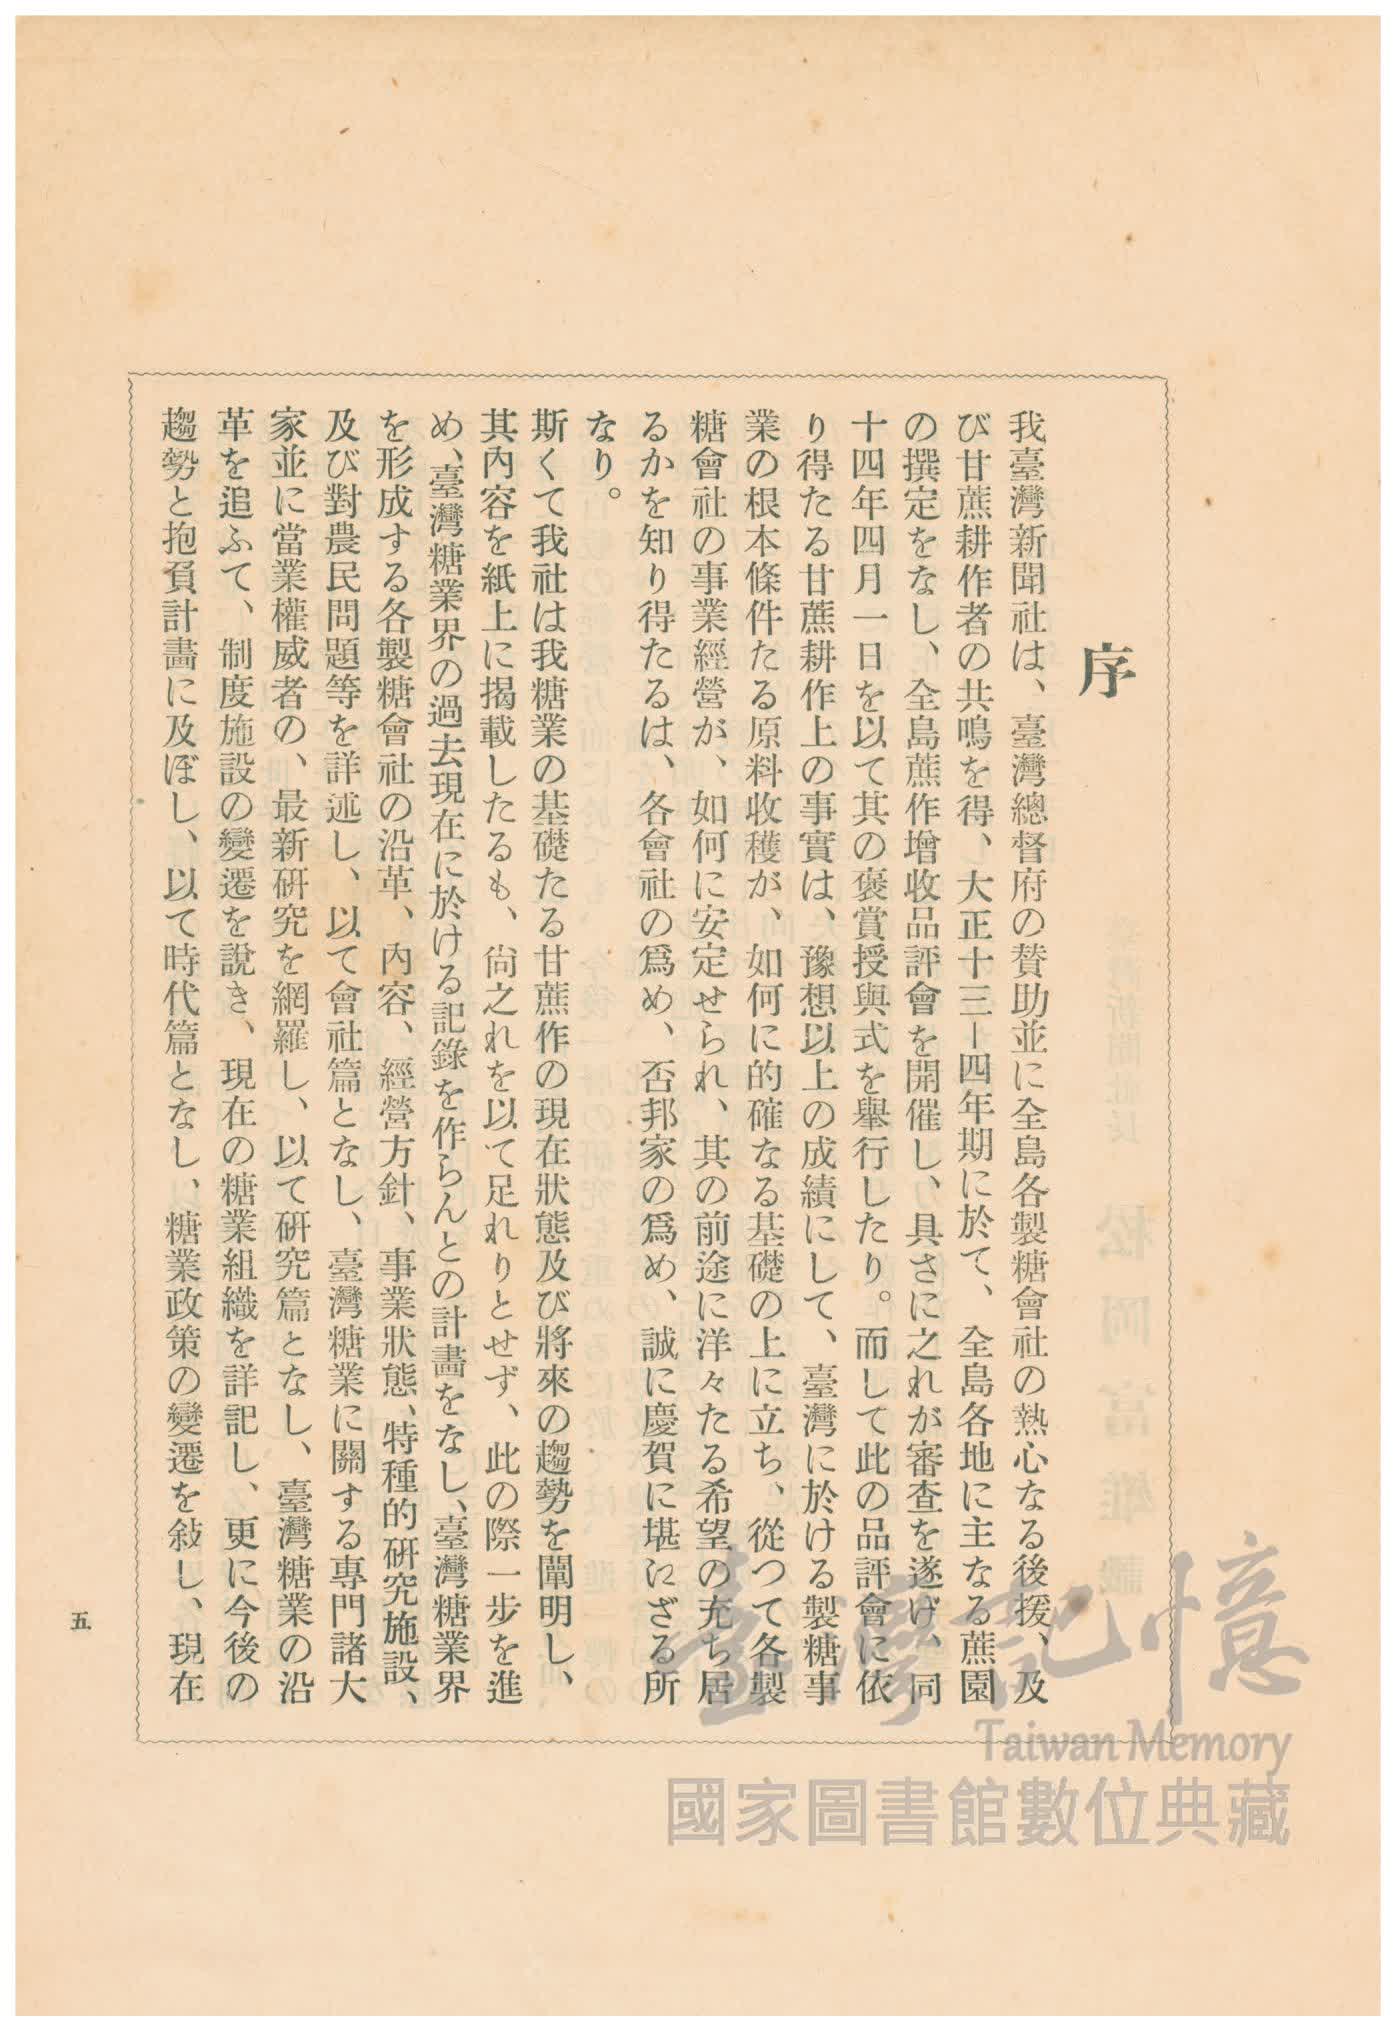 序
我臺灣新聞社は、臺灣總督府の賛助並に全島各製糖會社の熱心なる後援、及
び甘蔗耕作者の共鳴を得、大正十三ー四年期に於て、全島各地に主なる蔗園
の撰定をなし、全島蔗作增收品評會を開催し、具さに之れが審查を遂げ、同
十四年四月一日を以て其の褒賞授與式を舉行したり。而して此の品評會に依
り得たる甘蔗耕作上の事實は、豫想以上の成績にして、臺灣に於ける製糖事
業の根本條件たる原料收穫が、如何に的確なる基礎の上に立ち、從つて各製
糖會社の事業經營が、如何に安定せられ、其の前途に洋々たる希望の充ち居
るかを知り得たるは、各會社の爲め、否邦家の爲め、誠に慶賀に堪にざる所
なり。
斯くて我社は我糖業の基礎たる甘蔗作の現在狀態及び將來の趨勢を闡明し、
其內容を紙上に揭載したるも、尙之れを以て足れりとせず、此の際一步を進
め、臺灣糖業界の過去現在に於ける記錄を作らんとの計畵をなし、臺灣糖業界
を形成する各製糖會社の沿革、內容、經營方針、事業狀態、特種的硏究施設、
及び對農民問題等を詳述し、以て會社篇となし、臺灣糖業に關する專門諸大
家並に當業權威者の、最新硏究を網羅し、以て硏究篇となし、臺灣糖業の沿
革を追ふて、制度施設の變遷を說き、現在の糖業組織を詳記し、更に今後の
趨勢と抱負計畵に及ぼし、以て時代篇となし、糖業政策の變遷を敍し、現在
五
臺灣記憶
Taiwan Memory
國家圖書館數位典藏